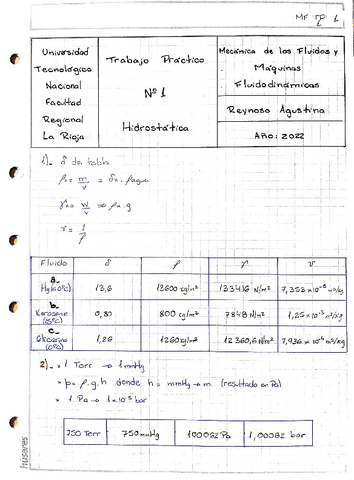 MF TP 1
Universidad Tecnológica Nacional Facultad Regional La Rioja
Trabajo Práctico Nº 1 Hidrostática
Mecánica de los Fluidos y Máquinas Fluidodinámicas
Reynoso Agustina
Año: 2022
1)- δ de tabla
ρx = m/v = δx . ρagua
γx = w/v => ρx . g
v = 1/ρ
Fluido δ ρ γ v
a- Hg 13,6 13600 kg/m³ 133416 N/m³ 7,353 x10⁻⁵ m³/kg
b- Kerosene 0,80 800 kg/m³ 7848 N/m³ 1,25 x10⁻³ m³/kg
c- Glicerina (0ºC) 1,26 1260 kg/m³ 12360,6 N/m³ 7,936 x10⁻⁴ m³/kg
2)- x 1 Torr → 1 mmHg
x p = ρ.g.h donde h = mmHg → m (resultado en Pa)
x 1 Pa → 1x10⁻⁵ bar
750 Torr 750 mmHg 100062 Pa 1,00062 bar
husares